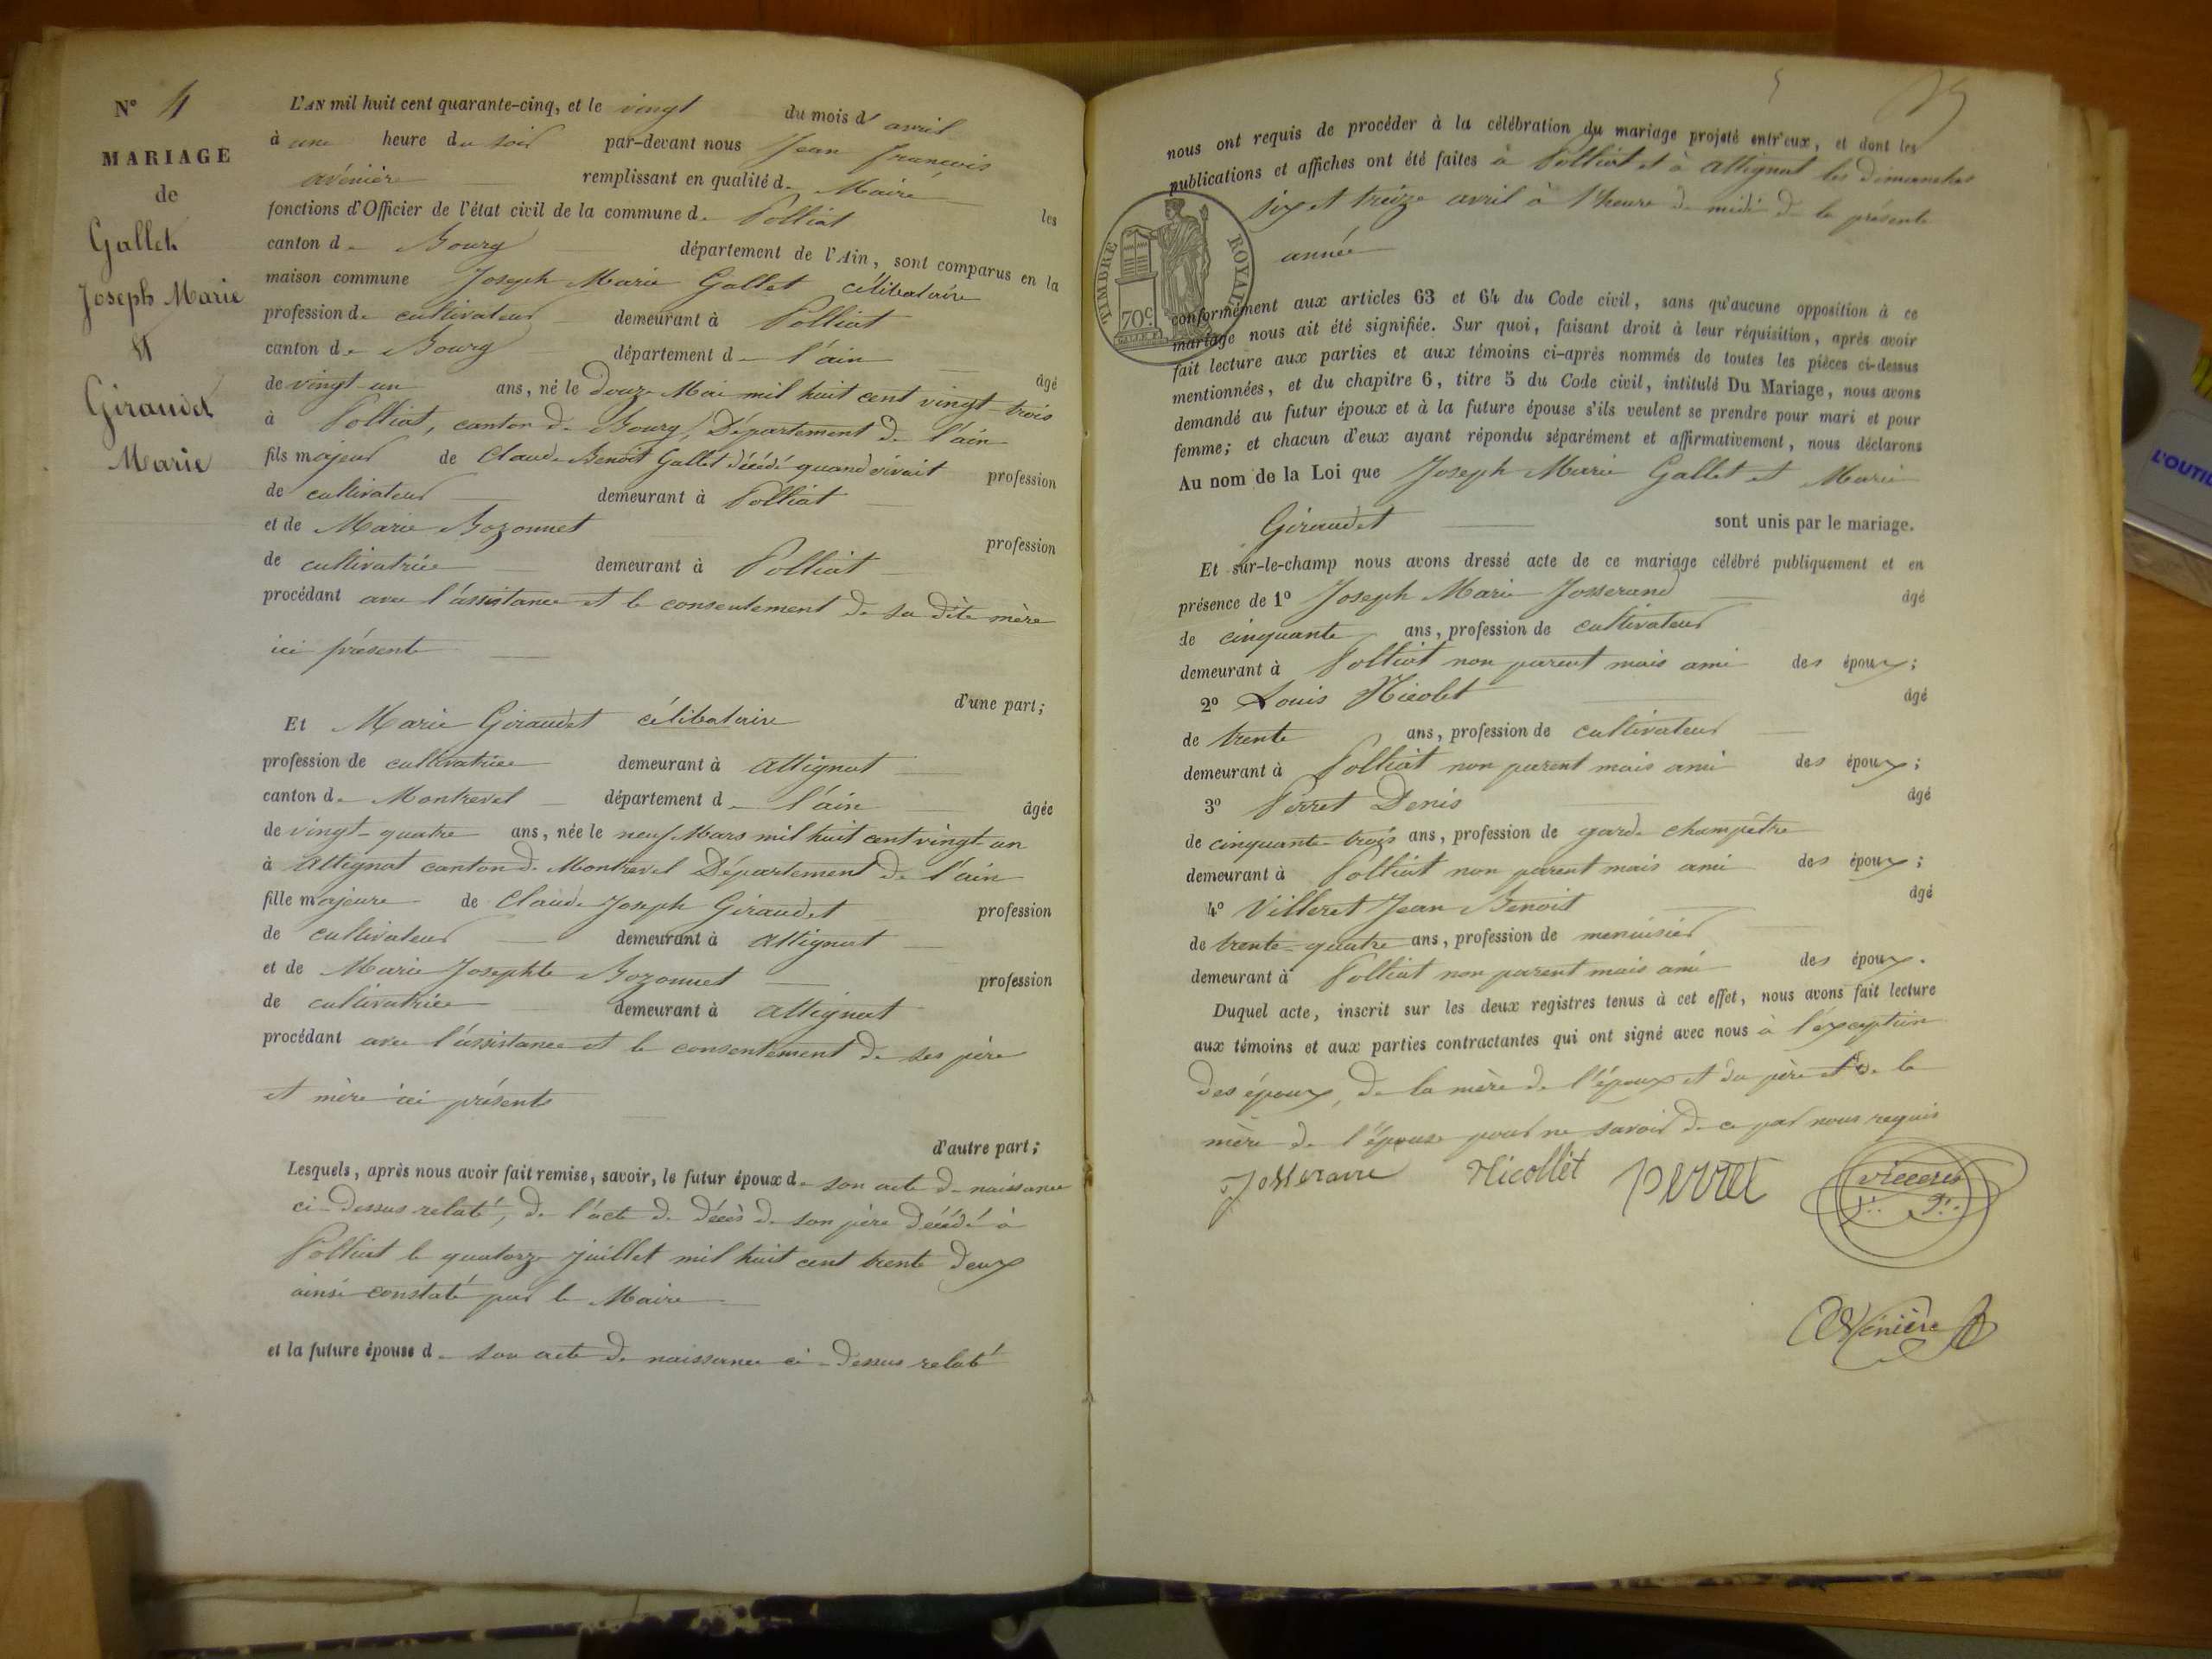 N° 4
MARIAGE
de
Gallet
Joseph Marie
et
Giraudet
Marie
L'AN mil huit cent quarante-cinq, et le vingt du mois d'avril
à une heure du soir par-devant nous Jean françois
avénière remplissant en qualité de Maire les
fonctions d'Officier de l'état civil de la commune de Polliat
canton de Bourg département de l'Ain, sont comparus en la
maison commune Joseph Marie Gallet célibataire
profession de cultivateur demeurant à Polliat
canton de Bourg département de l'ain âgé
de vingt-un ans, né le douze Mai mil huit cent vingt-trois
à Polliat, canton de Bourg, Département de l'ain
fils majeur de Claude Benoit Gallet décédé quand vivait profession
de cultivateur demeurant à Polliat
et de Marie Bozonnet profession
de cultivatrice demeurant à Polliat
procédant avec l'assistance et le consentement de sa dite mère
ici présente
d'une part;
Et Marie Giraudet célibataire
profession de cultivatrice demeurant à attignat
canton de Montrevel département de l'ain âgée
de vingt-quatre ans, née le neuf Mars mil huit cent vingt-un
à attignat canton de Montrevel Département de l'ain
fille majeure de Claude Joseph Giraudet profession
de cultivateur demeurant à attignat
et de Marie Josephte Bozonnet profession
de cultivatrice demeurant à attignat
procédant avec l'assistance et le consentement de ses père
et mère ici présents
d'autre part;
Lesquels, après nous avoir fait remise, savoir, le futur époux de son acte de naissance
ci-dessus relaté, de l'acte de décès de son père décédé à
Polliat le quatorze juillet mil huit cent trente deux
ainsi constaté par le Maire
et la future épouse de son acte de naissance ci-dessus relaté
5
nous ont requis de procéder à la célébration du mariage projeté entr'eux, et dont les
publications et affiches ont été faites à Polliat et à attignat les dimanches
six et treize avril à l'heure de midi de la présente
année
TIMBRE ROYAL
70c
conformément aux articles 63 et 64 du Code civil, sans qu'aucune opposition à ce
mariage nous ait été signifiée. Sur quoi, faisant droit à leur réquisition, après avoir
fait lecture aux parties et aux témoins ci-après nommés de toutes les pièces ci-dessus
mentionnées, et du chapitre 6, titre 5 du Code civil, intitulé Du Mariage, nous avons
demandé au futur époux et à la future épouse s'ils veulent se prendre pour mari et pour
femme; et chacun d'eux ayant répondu séparément et affirmativement, nous déclarons
Au nom de la Loi que Joseph Marie Gallet et Marie
Giraudet sont unis par le mariage.
Et sur-le-champ nous avons dressé acte de ce mariage célébré publiquement et en
présence de 1° Joseph Marie Josserand âgé
de cinquante ans, profession de cultivateur
demeurant à Polliat non parent mais ami des époux;
2° Louis Nicolet âgé
de trente ans, profession de cultivateur
demeurant à Polliat non parent mais ami des époux;
3° Perret Denis âgé
de cinquante-trois ans, profession de garde champêtre
demeurant à Polliat non parent mais ami des époux;
4° Villeret Jean Benoit âgé
de trente-quatre ans, profession de menuisier
demeurant à Polliat non parent mais ami des époux.
Duquel acte, inscrit sur les deux registres tenus à cet effet, nous avons fait lecture
aux témoins et aux parties contractantes qui ont signé avec nous à l'exception
des époux, de la mère de l'époux et du père et de la
mère de l'épouse pour ne savoir de ce par nous requis
Nicollet Perret
Avénière
L'OUTIL